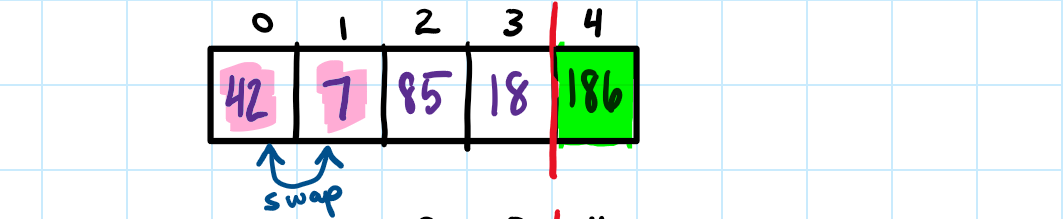 0 1 2 3 4
42 7 85 18 186
swap